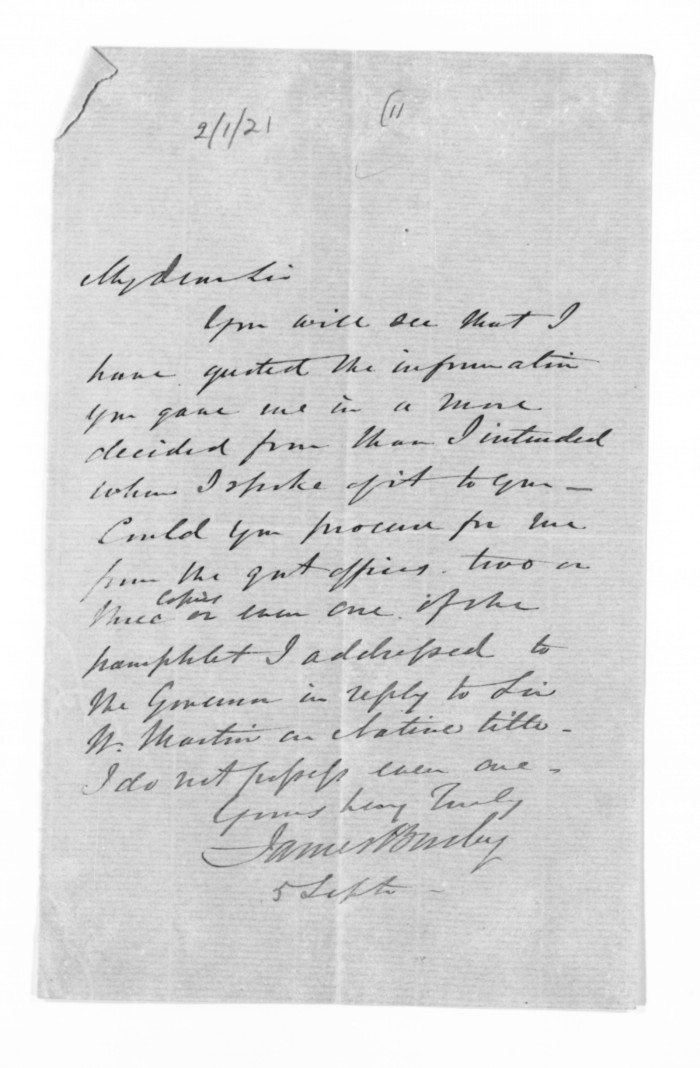 2/1/21
(11
My dear Sir
You will see that I
have quoted the information
you gave me in a more
decided form than I intended
when I spoke of it to you —
Could you procure for me
from the govt offices two or
three copies or even one of the
pamphlet I addressed to
the Governor in reply to Sir
W. Martin on Native title -
I do not possess even one -
Yours very Truly
James Busby
5 Septr -